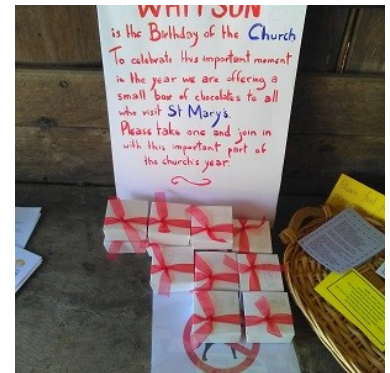 WHITSUN
is the Birthday of the Church
To celebrate this important moment
in the year we are offering a
small box of chocolates to all
who visit St Mary's.
Please take one and join in
with this important part of
the church's year.